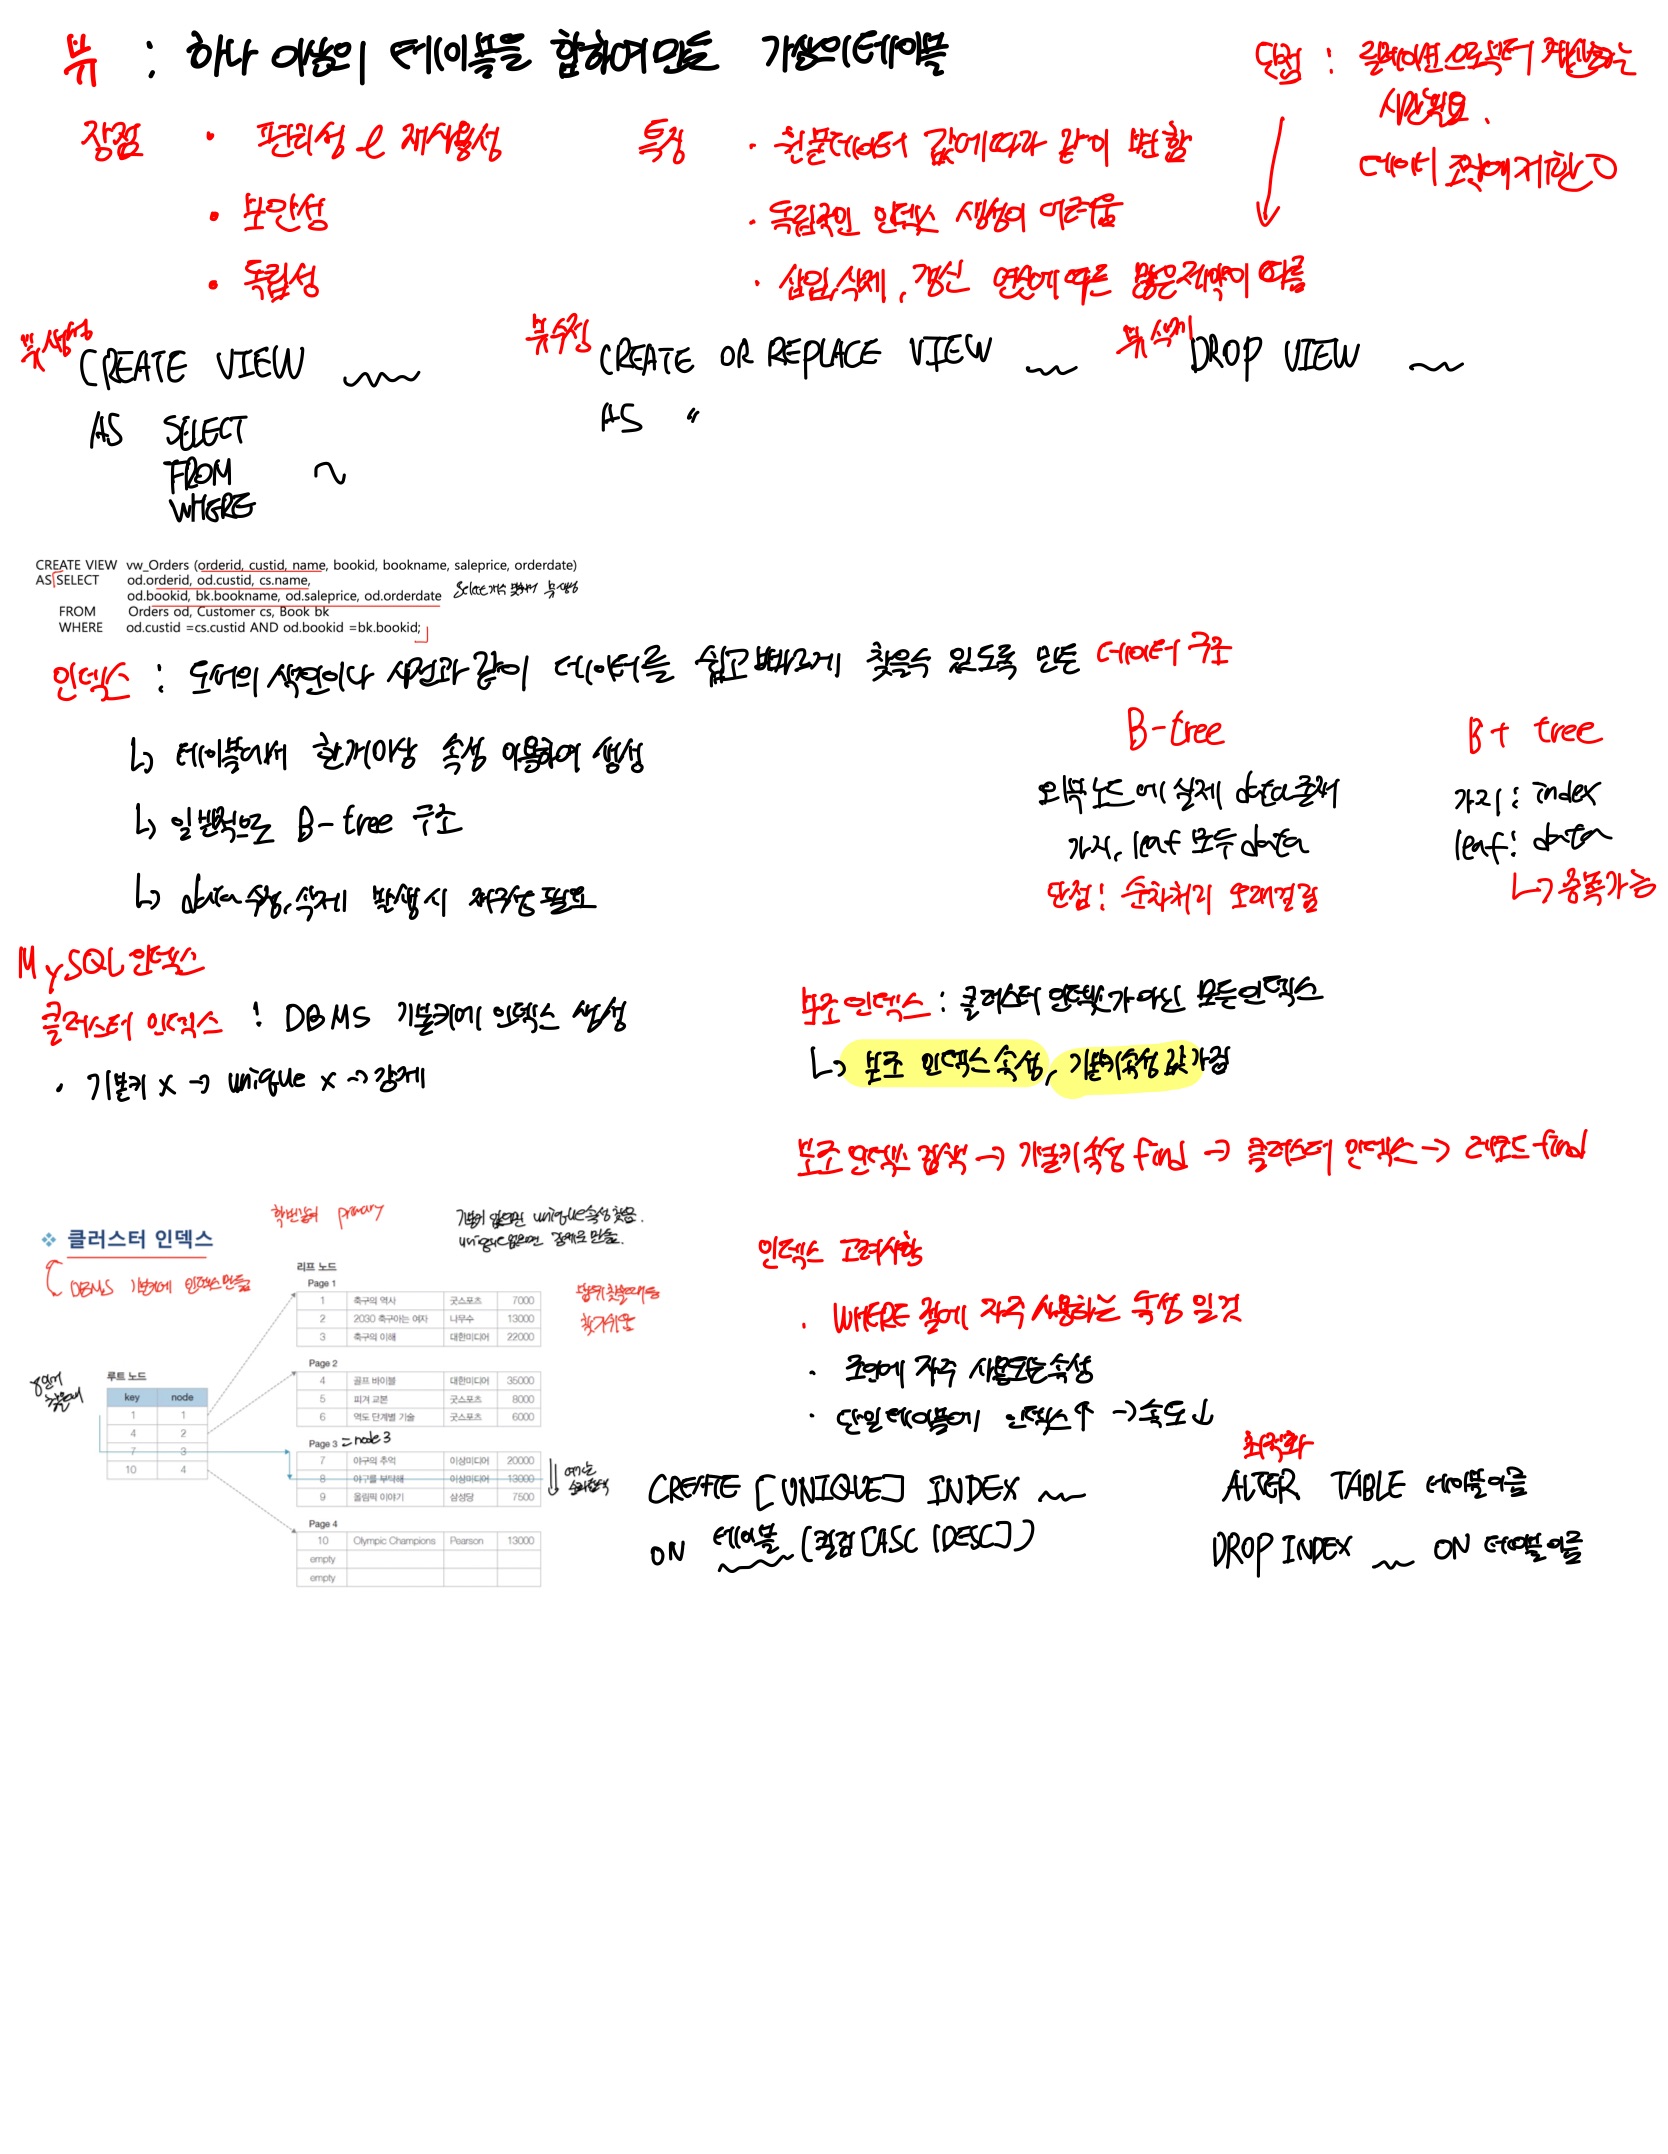 뷰 : 하나 이상의 테이블을 합하여 만든 가상의 테이블
단점 : 릴레이션으로부터
시간필요.
데이터 조작에 제한 O
장점 · 편리성 & 재사용성
· 보안성
· 독립성
특징 · 원본데이터 값에 따라 같이 변함
· 독립적인 인덱스 생성이 어려움
· 삽입, 삭제, 갱신 연산에 따른 많은 제약이 따름
뷰생성
CREATE VIEW
AS SELECT
FROM
WHERE
뷰수정
CREATE OR REPLACE VIEW
AS "
뷰 삭제
DROP VIEW
CREATE VIEW vw_Orders (orderid, custid, name, bookid, bookname, saleprice, orderdate)
AS SELECT od.orderid, od.custid, cs.name,
od.bookid, bk.bookname, od.saleprice, od.orderdate
FROM Orders od, Customer cs, Book bk
WHERE od.custid =cs.custid AND od.bookid =bk.bookid;
인덱스 : 도서의 색인이나 사전과 같이 데이터를 쉽고 빠르게 찾을수 있도록 만든 데이터 구조
↳ 테이블에서 한개이상 속성 이용하여 생성
↳ 일반적으로 B-tree 구조
↳ data 수정, 삭제 발생시 재구성 필요
B-tree
외부노드에 실제 data존재
가지, leaf 모두 data
단점! 순차처리 오래걸림
B+ tree
가지 : index
leaf : data
↳ 중복가능
MySQL 인덱스
클러스터 인덱스 : DBMS 기본키에 인덱스 생성
· 기본키 x → unique x → 강제
보조 인덱스 : 클러스터 인덱스가 아닌 모든인덱스
↳ 보조 인덱스 속성, 기본키속성 값 가짐
보조 인덱스 검색 → 기본키속성 find → 클러스터 인덱스 → 레코드 find
primary
기본키 없으면 unique속성 찾음.
unique없으면 강제로 만듦.
❖ 클러스터 인덱스
DBMS 기본키에 인덱스만듦
루트 노드
key node
1 1
4 2
7 3
10 4
리프 노드
Page 1
1 축구의 역사 굿스포츠 7000
2 2030 축구아는 여자 나무수 13000
3 축구의 이해 대한미디어 22000
Page 2
4 골프 바이블 대한미디어 35000
5 피겨 교본 굿스포츠 8000
6 역도 단계별 기술 굿스포츠 6000
Page 3 = node 3
7 야구의 추억 이상미디어 20000
8 야구를 부탁해 이상미디어 13000
9 올림픽 이야기 삼성당 7500
Page 4
10 Olympic Champions Pearson 13000
empty
empty
찾기쉬움
인덱스 고려사항
· WHERE 절에 자주 사용하는 속성 일것
· 조인에 자주 사용되는 속성
· 단일 테이블에 인덱스↑ → 속도↓
CREATE [UNIQUE] INDEX
ON 테이블 (컬럼 [ASC | DESC])
최적화
ALTER TABLE 테이블이름
DROP INDEX ON 테이블 이름